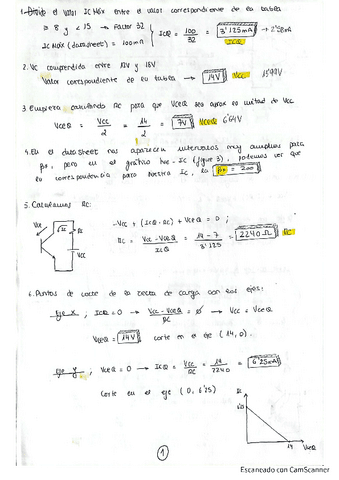 1. Divido el valor IC Máx entre el valor correspondiente de la tabla
≥ 8 y < 15 → Factor 32
IC Máx (datasheet) = 100mA
ICQ = 100/32 = 3'125mA → 2'58mA
ICQ
2. Vc comprendida entre 12V y 18V
Valor correspondiente de su tabla → 14V Vcc
3. Empieza calculando Rc para que VCEQ sea aprox la mitad de Vcc
VCEQ = Vcc/2 = 14/2 = 7V VCEQ 6'64V
4. En el datasheet nos aparecen intervalos muy amplios para
β, pero en el gráfico hFE-IC (figure 3), podemos ver que
la correspondencia para nuestra Ic, la β = 200
5. Calculamos Rc:
-Vcc + (ICQ·RC) + VCEQ = 0 ;
RC = Vcc - VCEQ/ICQ = 14 - 7/3'125 = 2240 Ω RC
VCE
RC
VCC
6. Puntos de corte de la recta de carga con los ejes:
eje x, ICQ = 0 → Vcc - VCEQ/RC = 0 → Vcc = VCEQ
VCEQ = 14V corte en el eje (14, 0).
eje y, VCEQ = 0 → ICQ = Vcc/RC = 14/2240 = 6'25mA
Corte en el eje (0, 6'25)
6'25
14
VCEQ
1
Escaneado con CamScanner